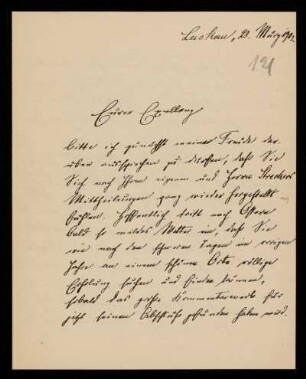 Luckau, 23. März 1902.
121
Eurer Exzellenz
bitte ich zunächst meiner Freude dar-
über aussprechen zu dürfen, daß Sie
Sich nach Ihren eigenen und Herrn
Mittheilungen ganz wieder hergestellt
fühlen. Hoffentlich tritt nach Ostern
bald so mildes Wetter ein, daß Sie
wie nach den schweren Tagen im vorigen
Jahre an einem schönen Orte völlige
Erholung suchen und finden können,
sobald das große Kommentarwerk für
jetzt seinen Abschluß gefunden haben wird.